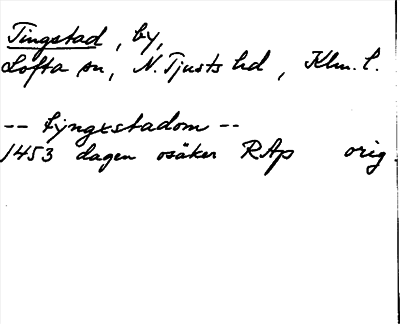 Tingstad, by,
Lofta sn, N. Tjusts hd, Klm. l.
-- tyngxstadom --
1453 dagen osäker RAp orig.